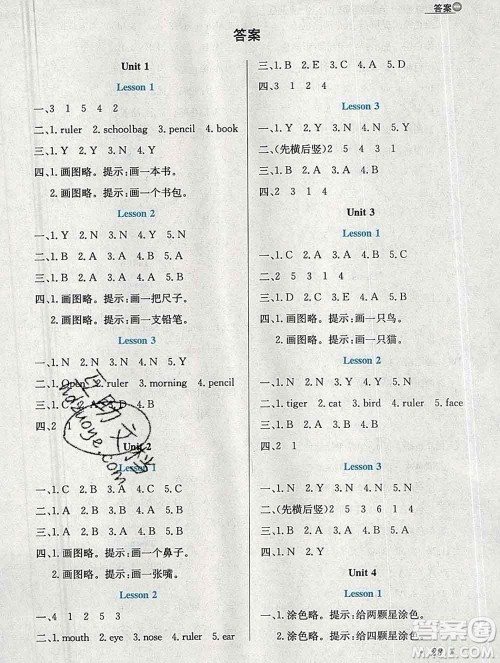 答案
答案
Unit 1
Lesson 1
一、3 1 5 4 2
二、1. ruler 2. schoolbag 3. pencil 4. book
三、1. Y 2. Y 3. N 4. Y
四、1. 画图略。提示:画一本书。
2. 画图略。提示:画一个书包。
Lesson 2
一、1. Y 2. N 3. N 4. Y 5. N
二、1. N 2. Y 3. N 4. Y 5. N
三、1. A 2. B 3. A 4. A 5. B
四、1. 画图略。提示:画一把尺子。
2. 画图略。提示:画一支铅笔。
Lesson 3
一、1. N 2. Y 3. N 4. N 5. Y
二、1. Open 2. ruler 3. morning 4. pencil
三、1. C 2. A 3. D 4. B
四、2
Unit 2
Lesson 1
一、1. C 2. B 3. A 4. B 5. A
二、1. N 2. Y 3. Y 4. N 5. Y
三、1. B 2. A 3. A 4. A 5. B
四、1. 画图略。提示:画一个鼻子。
2. 画图略。提示:画一张嘴。
Lesson 2
一、4 1 2 5 3
二、1. mouth 2. eye 3. nose 4. ruler 5. ear
三、1. B 2. E 3. C 4. A 5. D
四、3 1 4 2
Lesson 3
一、1. B 2. A 3. A 4. B 5. B
二、(先横后竖) 2 5 4 3 1
三、1. Y 2. N 3. N 4. Y
四、2 1
Unit 3
Lesson 1
一、1. C 2. A 3. D 4. B
二、2 5 3 1 4
三、1. B 2. A 3. A 4. B 5. A
四、1. 画图略。提示:画一只鸟。
2. 画图略。提示:画一只猫。
Lesson 2
一、1. N 2. Y 3. N 4. Y 5. Y
二、1. tiger 2. cat 3. bird 4. ruler 5. face
三、1. B 2. A 3. B 4. A
四、2 1
Lesson 3
一、1. N 2. Y 3. N 4. Y 5. Y
二、(先横后竖) 2 5 3 6 4 1
三、1. B 2. A 3. A 4. B 5. A
四、1. N 2. Y
Unit 4
Lesson 1
一、1. 涂色略。提示:给两颗星涂色。
2. 涂色略。提示:给四颗星涂色。